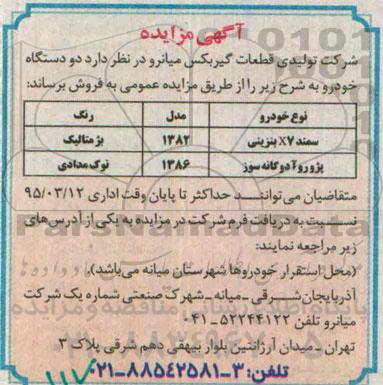 آگهی مزایده
شرکت تولیدی قطعات گیربکس میانرو در نظر دارد دو دستگاه
خودرو به شرح زیر را از طریق مزایده عمومی به فروش برساند:
نوع خودرو مدل رنگ
سمند X7 بنزینی ۱۳۸۲ بژ متالیک
پژو روآ دوگانه سوز ۱۳۸۶ نوک مدادی
متقاضیان می‌توانند حداکثر تا پایان وقت اداری ۹۵/۰۳/۱۲
نسبت به دریافت فرم شرکت در مزایده به یکی از آدرس‌های
زیر مراجعه نمایند:
(محل استقرار خودروها شهرستان میانه می‌باشد).
آذربایجان شرقی - میانه - شهرک صنعتی شماره یک شرکت
میانرو تلفن ۵۲۲۴۴۱۲۲-۰۴۱
تهران - میدان آرژانتین بلوار بیهقی دهم شرقی پلاک ۳
تلفن: ۳-۸۸۵۴۲۵۸۱-۰۲۱